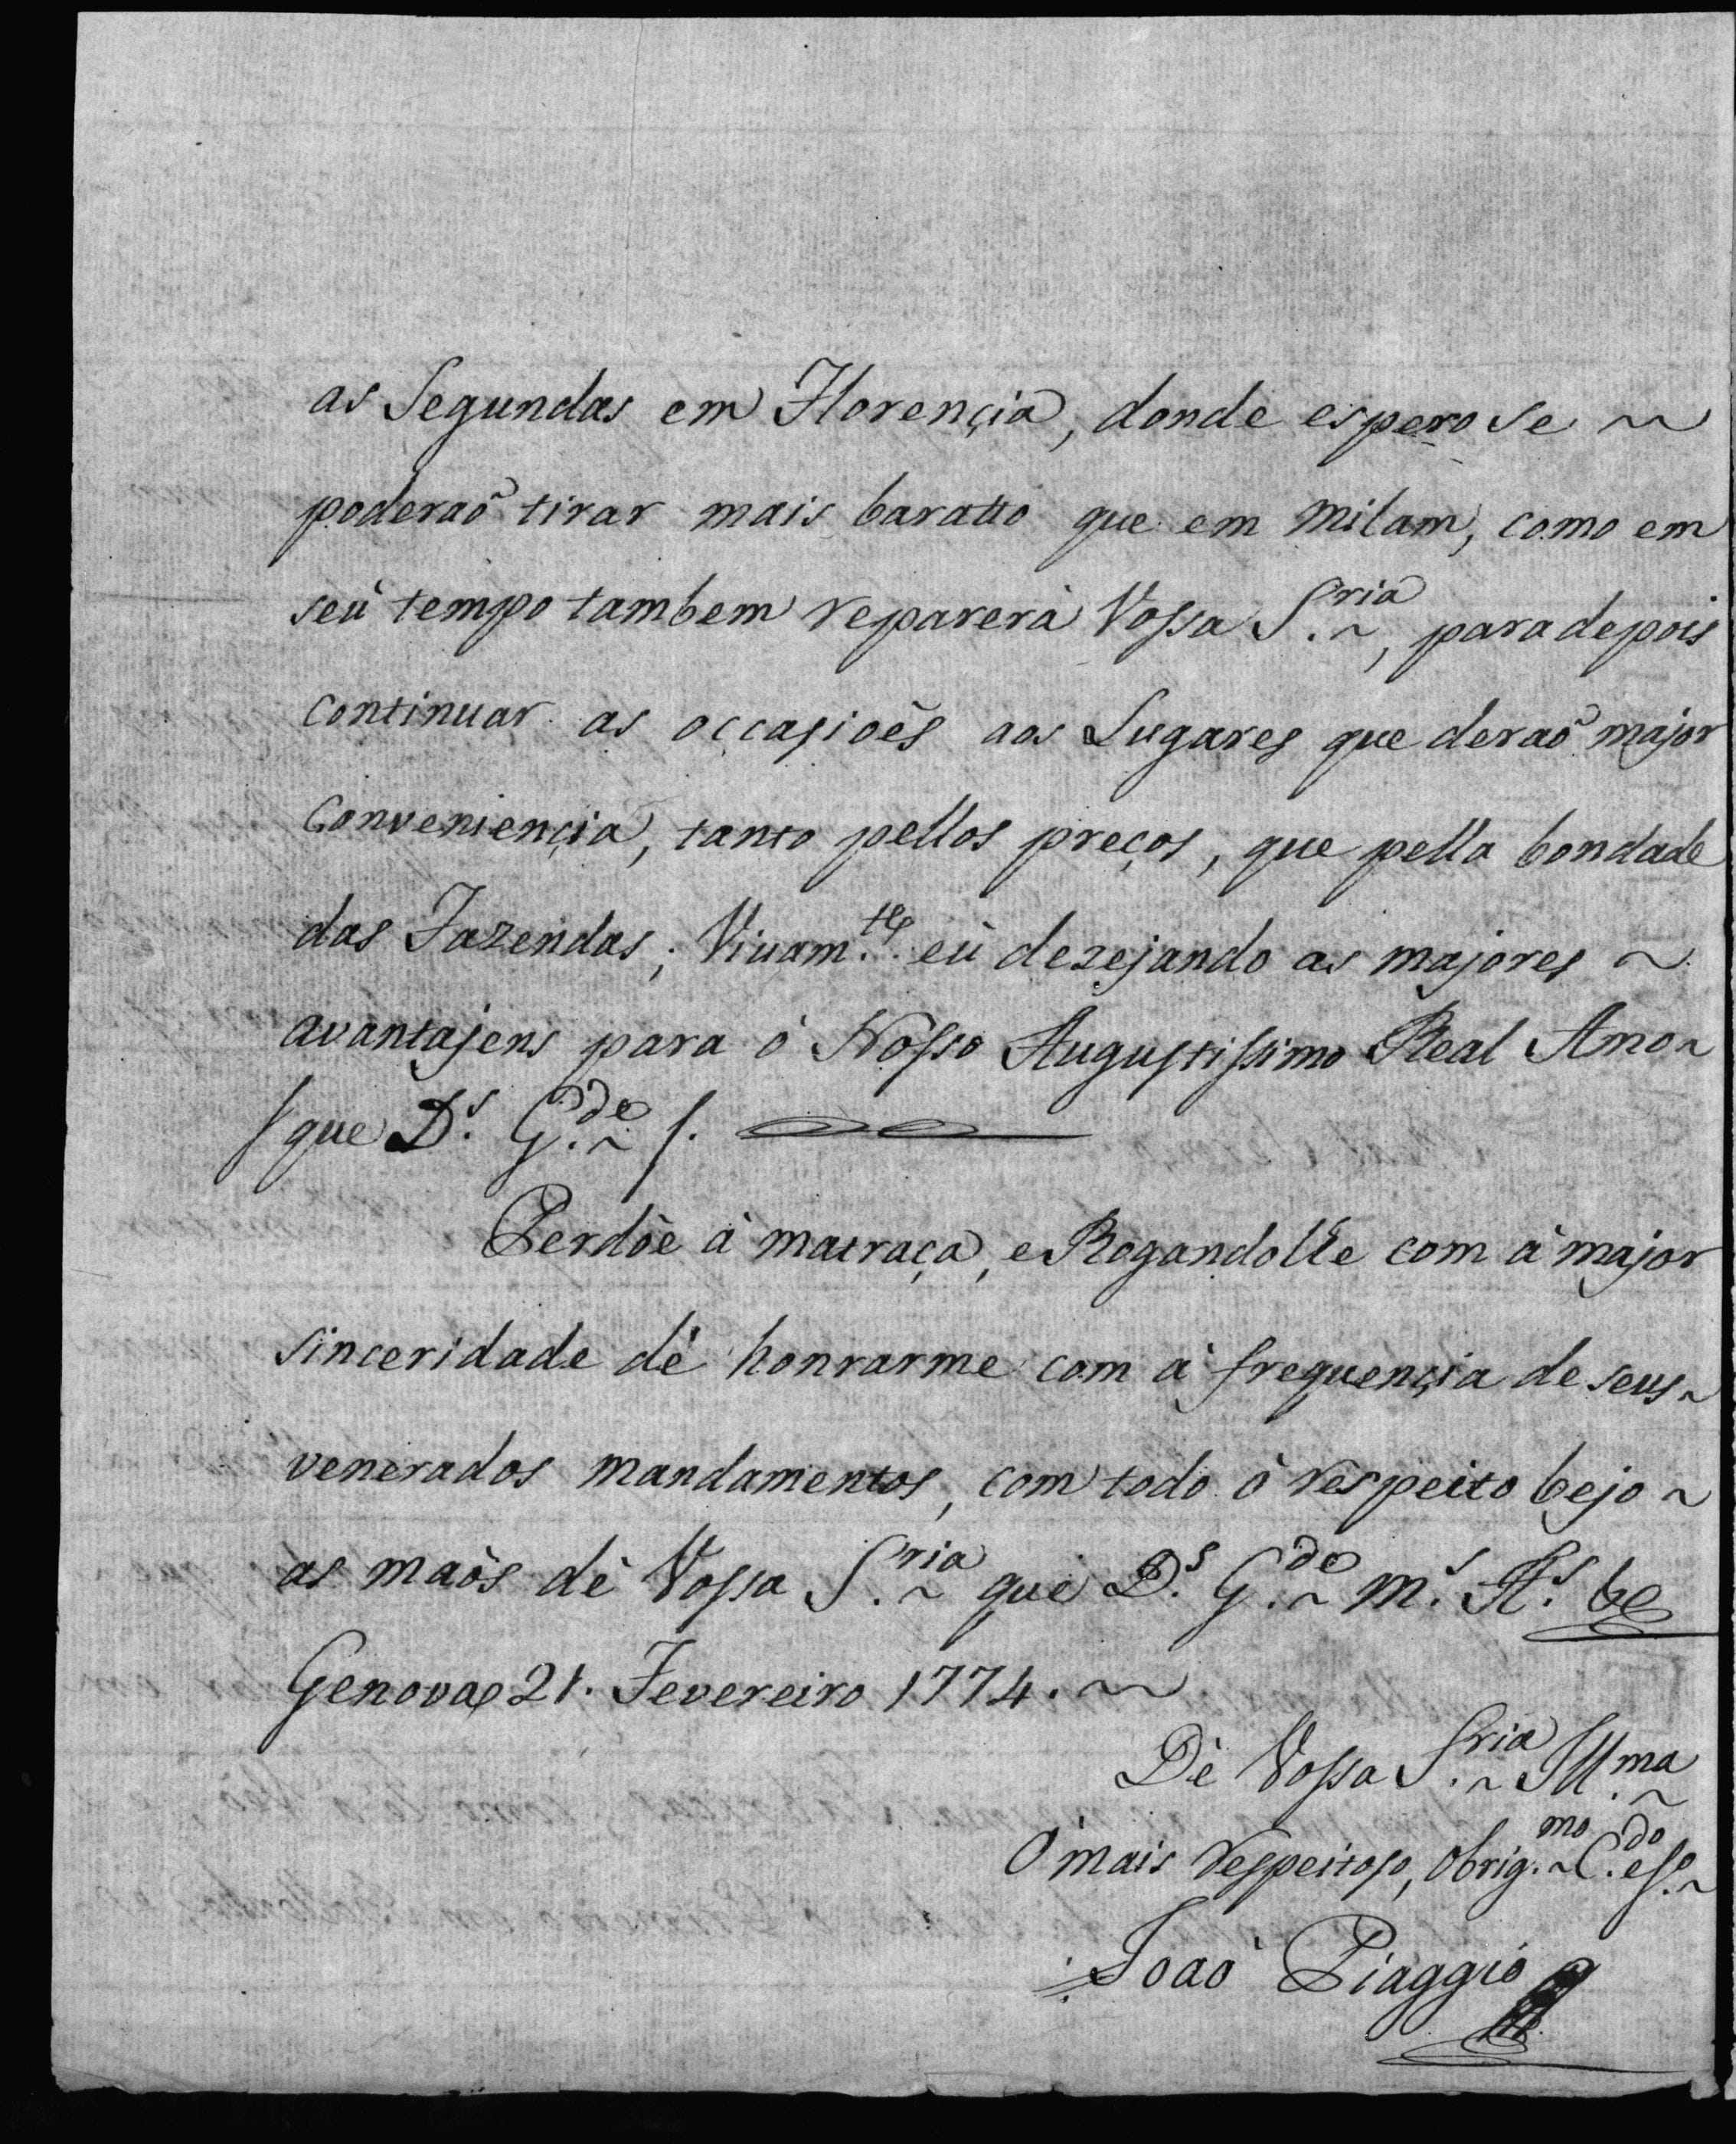 as Segundas em Florençia, donde espero se ~
poderaõ tirar mais baratto que em Milam, como em
seù tempo tambem reparerà Vossa S.ria, para depois
continuar as occasioẽs aos Lugares que deraõ major
Conveniençia, tanto pellos preços, que pella bondade
das Fazendas; Vivam.te eù dezejando as majores ~
avantajens para ò Nosso Augustissimo Real Amo ~
/ que D.s G.de /.
Perdòe à matraça, e Rogandolle com à major
sinceridade dè honrarme com à frequençia de seus ~
venerados mandamentos, com todo ò respeito bejo ~
as maòs dè Vossa S.ria que D.s G.de m.s A.s
Genova 21. Fevereiro 1774. ~
Dè Vossa S.ria Ill.ma
O mais respeitoso, obrig.mo C.do
Joaò Piaggio